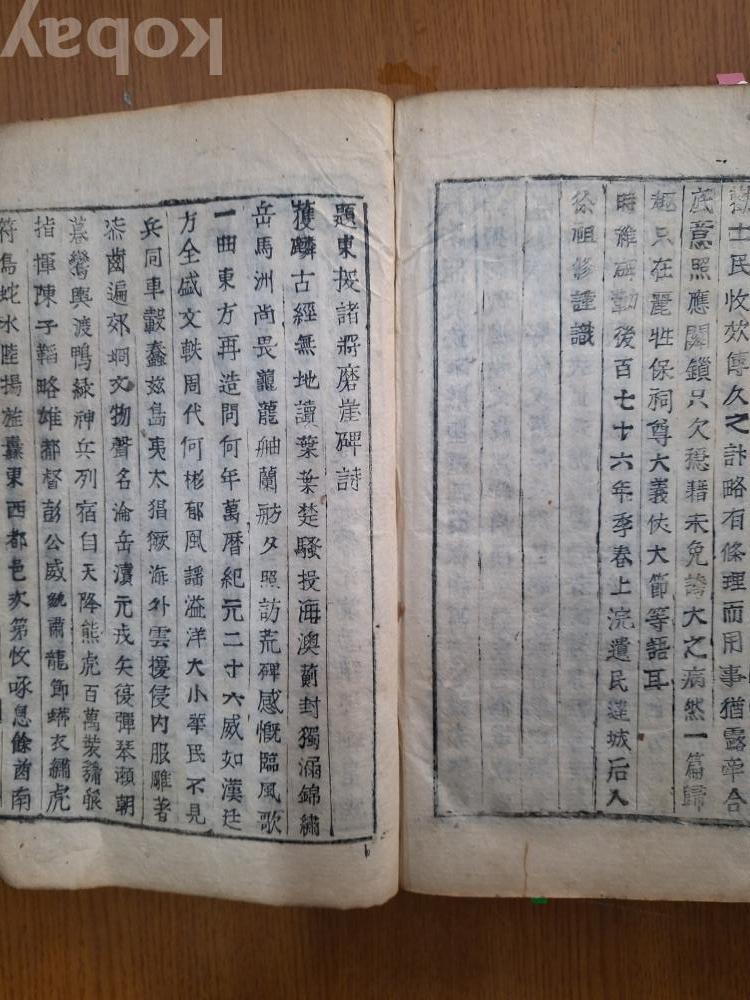 kobay
士民收效傳久之計略有條理而用事猶露牽合
底意照應關鎖只欠穩藉未免誇大之病然一篇歸
趣只在麗牲保祠尊大義仗大節等語耳
時雅碑勒後百七十六年季春上浣遺民達城后人
徐祖修謹識
題東援諸將磨崖碑詩
獲麟古經無地讀葉葉楚騷投海澳薊封獨漏錦繡
岳馬洲尚畏龍龍舳蘭舫夕照訪荒碑感慨臨風歌
一曲東方再造問何年萬曆紀元二十六威如漢廷
方全盛文軼周代何彬郁風謠溢洋大小華民不見
兵同車轂蠢玆島夷太猖獗海外雲擾侵內服雕著
漆齒遍郊坰文物聲名淪岳瀆元戎矢復彈琴瀨朝
暮鸞輿渡鴨綠神兵列宿自天降熊虎百萬裝
指揮陳子韜略雄都督彭公威皃肅龍節蟒衣繡虎
符鳥蛇水陸揚旌纛東西都邑次第收啄息餘酋南